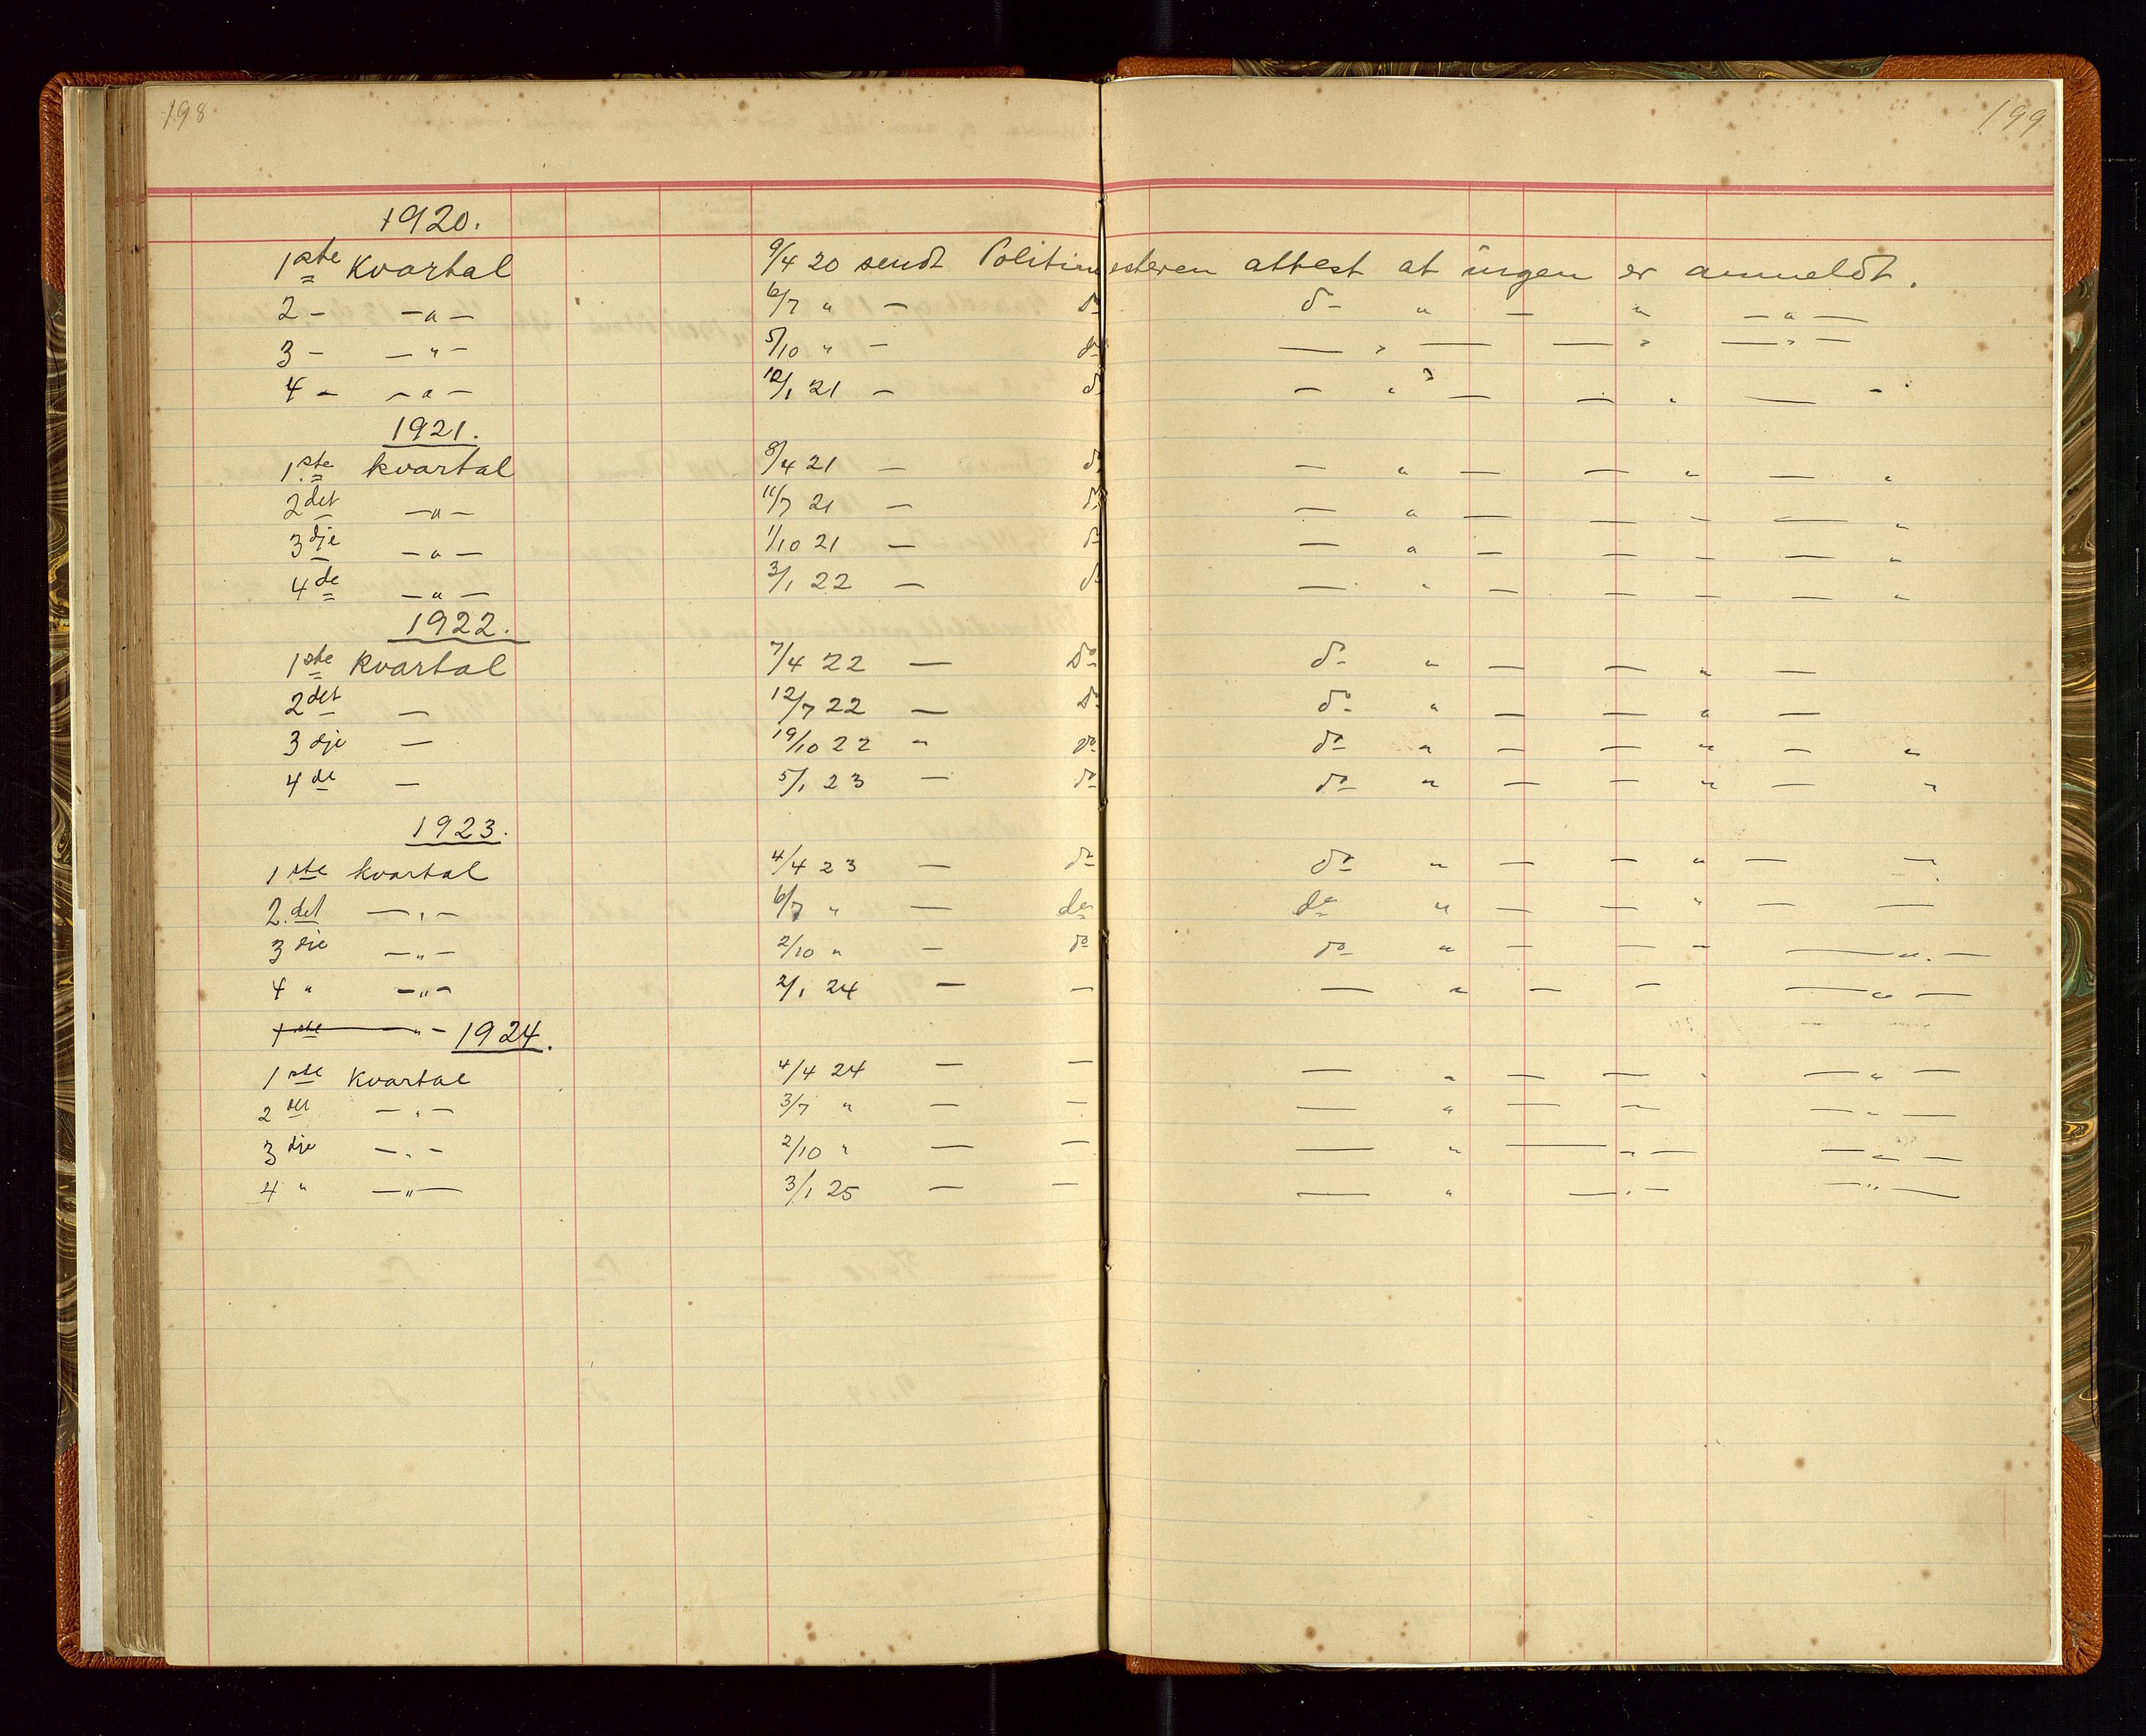 198
199
1920.
1ste Kvartal 9/4 20 sendt Politimesteren attest at ingen er anmeldt.
2 - — " — 6/7 " — do do " — " — " —
3 - — " — 5/10 " — do — " — — " — " —
4 - — " — 10/1 21 — do — " — — " — -
1921.
1.ste kvartal 8/4 21 — do — " — — " — "
2det — " — 11/7 21 — do — " — — - — "
3dje — " — 1/10 21 — do — " — — - — "
4de — " — 3/1 22 — do — " — — - — "
1922.
1ste Kvartal 7/4 22 — do do " — — " —
2det — 12/7 22 — do do " — — " —
3dje — 19/10 22 " do do " — — " — "
4de — 5/1 23 — do do " — — " — "
1923.
1ste kvartal 4/4 23 — do do " — — " — —
2.det — " — 6/7 " — do do " — — " — —
3die — " — 2/10 " — do do " — — - — " —
4 " — " — 2/1 24 — — — " — — — " —
1ste — " — 1924.
1ste Kvartal 4/4 24 — — — " — — " — " —
2det — " — 3/7 " — — — " — — — " —
3dje — " — 2/10 " — — — " — " — — " —
4 " — " — 3/1 25 — — — " — " — — " —